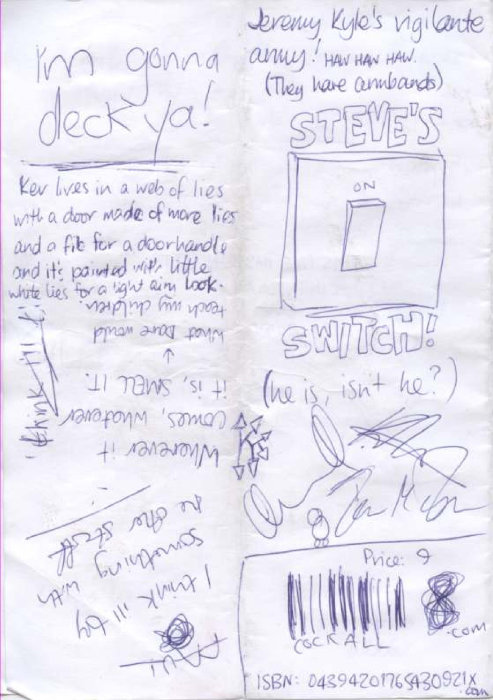 I'm gonna
deck ya!
Kev lives in a web of lies
with a door made of more lies
and a fib for a doorhandle
and it's painted with little
white lies for a light aim look.
Wherever it
comes, whatever
it is, SMELL IT.
what Dave would
teach my children.
I think I'll try
something with
the other stuff
Jeremy Kyle's vigilante
army! HAW HAW HAW.
(They have armbands)
STEVE'S
ON
SWITCH!
(he is, isn't he?)
Price: 9
.com
COCK ALL
ISBN: 04394201765430921X
.com